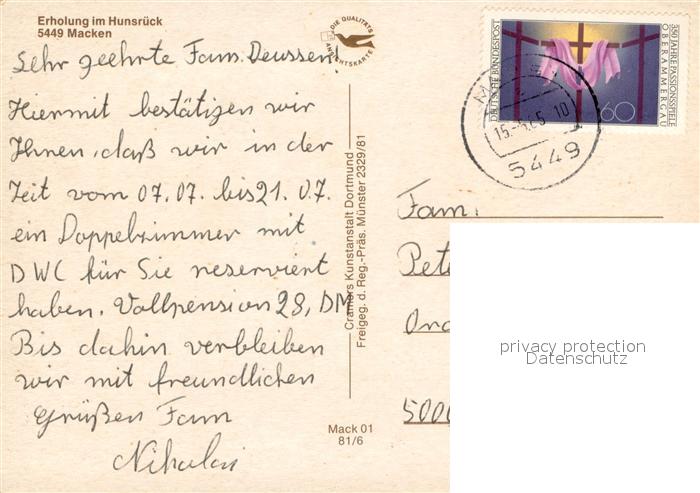 Erholung im Hunsrück
5449 Macken
DIE QUALITÄTS
ANSICHTSKARTE
Sehr geehrte Fam. Deussen!
Hiermit bestätigen wir
Ihnen, daß wir in der
Zeit vom 07.07. bis 21.07.
ein Doppelzimmer mit
DWC für Sie reserviert
haben. Vollpension 28, DM
Bis dahin verbleiben
wir mit freundlichen
Grüßen Fam
Nikolai
Cramers Kunstanstalt Dortmund
Freigeg. d. Reg.-Präs. Münster 2329/81
Mack 01
81/6
DEUTSCHE BUNDESPOST
350 JAHRE PASSIONSSPIELE
OBERAMMERGAU
60
5449
Fam.
Pet
500
privacy protection
Datenschutz